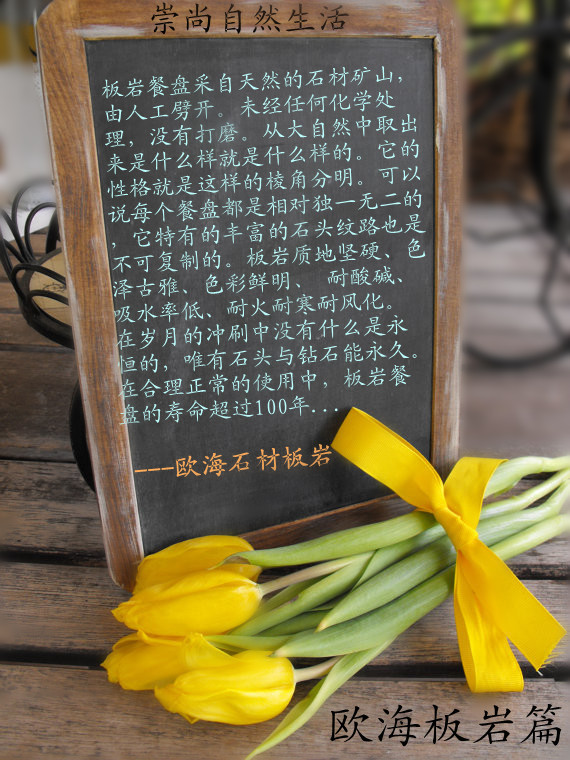 崇尚自然生活
板岩餐盘采自天然的石材矿山，
由人工劈开。未经任何化学处
理，没有打磨。从大自然中取出
来是什么样就是什么样的。它的
性格就是这样的棱角分明。可以
说每个餐盘都是相对独一无二的
，它特有的丰富的石头纹路也是
不可复制的。板岩质地坚硬、色
泽古雅、色彩鲜明、 耐酸碱、
吸水率低、耐火耐寒耐风化。
在岁月的冲刷中没有什么是永
恒的，唯有石头与钻石能永久。
在合理正常的使用中，板岩餐
盘的寿命超过100年...
---欧海石材板岩
欧海板岩篇